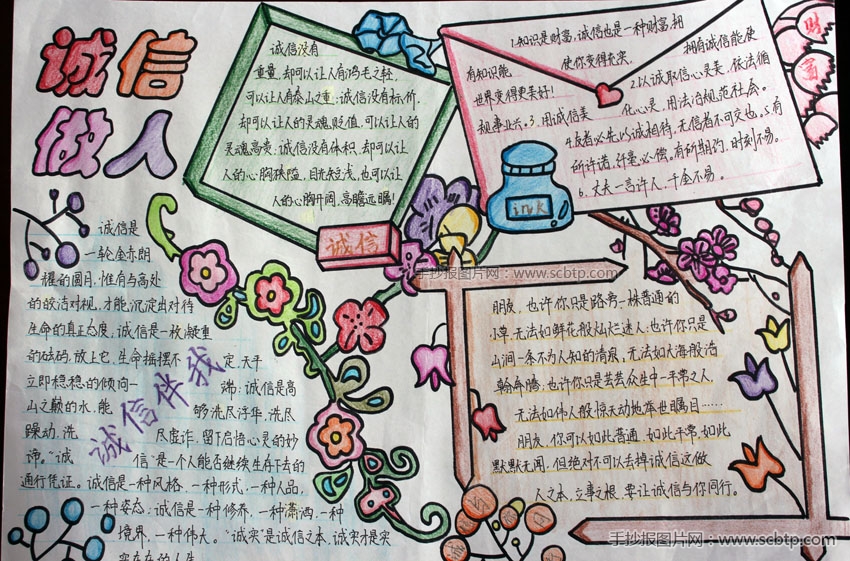 诚信
做人
诚信没有
重量，却可以让人有鸿毛之轻，
可以让人有泰山之重；诚信没有标价，
却可以让人的灵魂贬值，可以让人的
灵魂高贵；诚信没有体积，却可以让
人的心胸狭隘，目光短浅，也可以让
人的心胸开阔，高瞻远瞩！
诚信
1.知识是财富，诚信也是一种财富，拥
有知识能 使你变得充实， 拥有诚信能使
世界变得更美好！ 2.以诚取信心灵美，依法循
规事业兴。3.用诚信美 化心灵，用法治规范社会。
4.友者必先以诚相待，无信者不可交也。5.有
所许诺，纤毫必偿。有所期约，时刻不易。
6.丈夫一言许人，千金不易。
财
富
ink
手抄报图片网：www.scbtp.com
诚信是
一轮金赤朗
耀的圆月，惟有与高处
的皎洁对视，才能沉淀出对待
生命的真正态度；诚信是一枚凝重
的砝码，放上它，生命摇摆不 定，天平
立即稳稳的倾向一 端；诚信是高
山之巅的水，能 够洗尽浮华，洗尽
躁动，洗 尽虚诈，留下启悟心灵的妙
谛。“诚 信”是一个人能否继续生存下去的
通行凭证。诚信是一种风格，一种形式，一种人品，
一种姿态；诚信是一种修养，一种潇洒，一种
境界，一种伟大。“诚实”是诚信之本，诚实才是实
实在在的人生
诚信伴我
朋友，也许你只是路旁一株普通的
小草，无法如鲜花般灿烂迷人；也许你只是
山涧一条不为人知的清泉，无法如大海般浩
翰奔腾；也许你只是芸芸众生中一平常之人，
无法如伟人般惊天动地举世瞩目……
朋友，你可以如此普通，如此平常，如此
默默无闻，但绝对不可以去掉诚信这做
人之本，立事之根，要让诚信与你同行。
手抄报图片网：www.scbtp.com